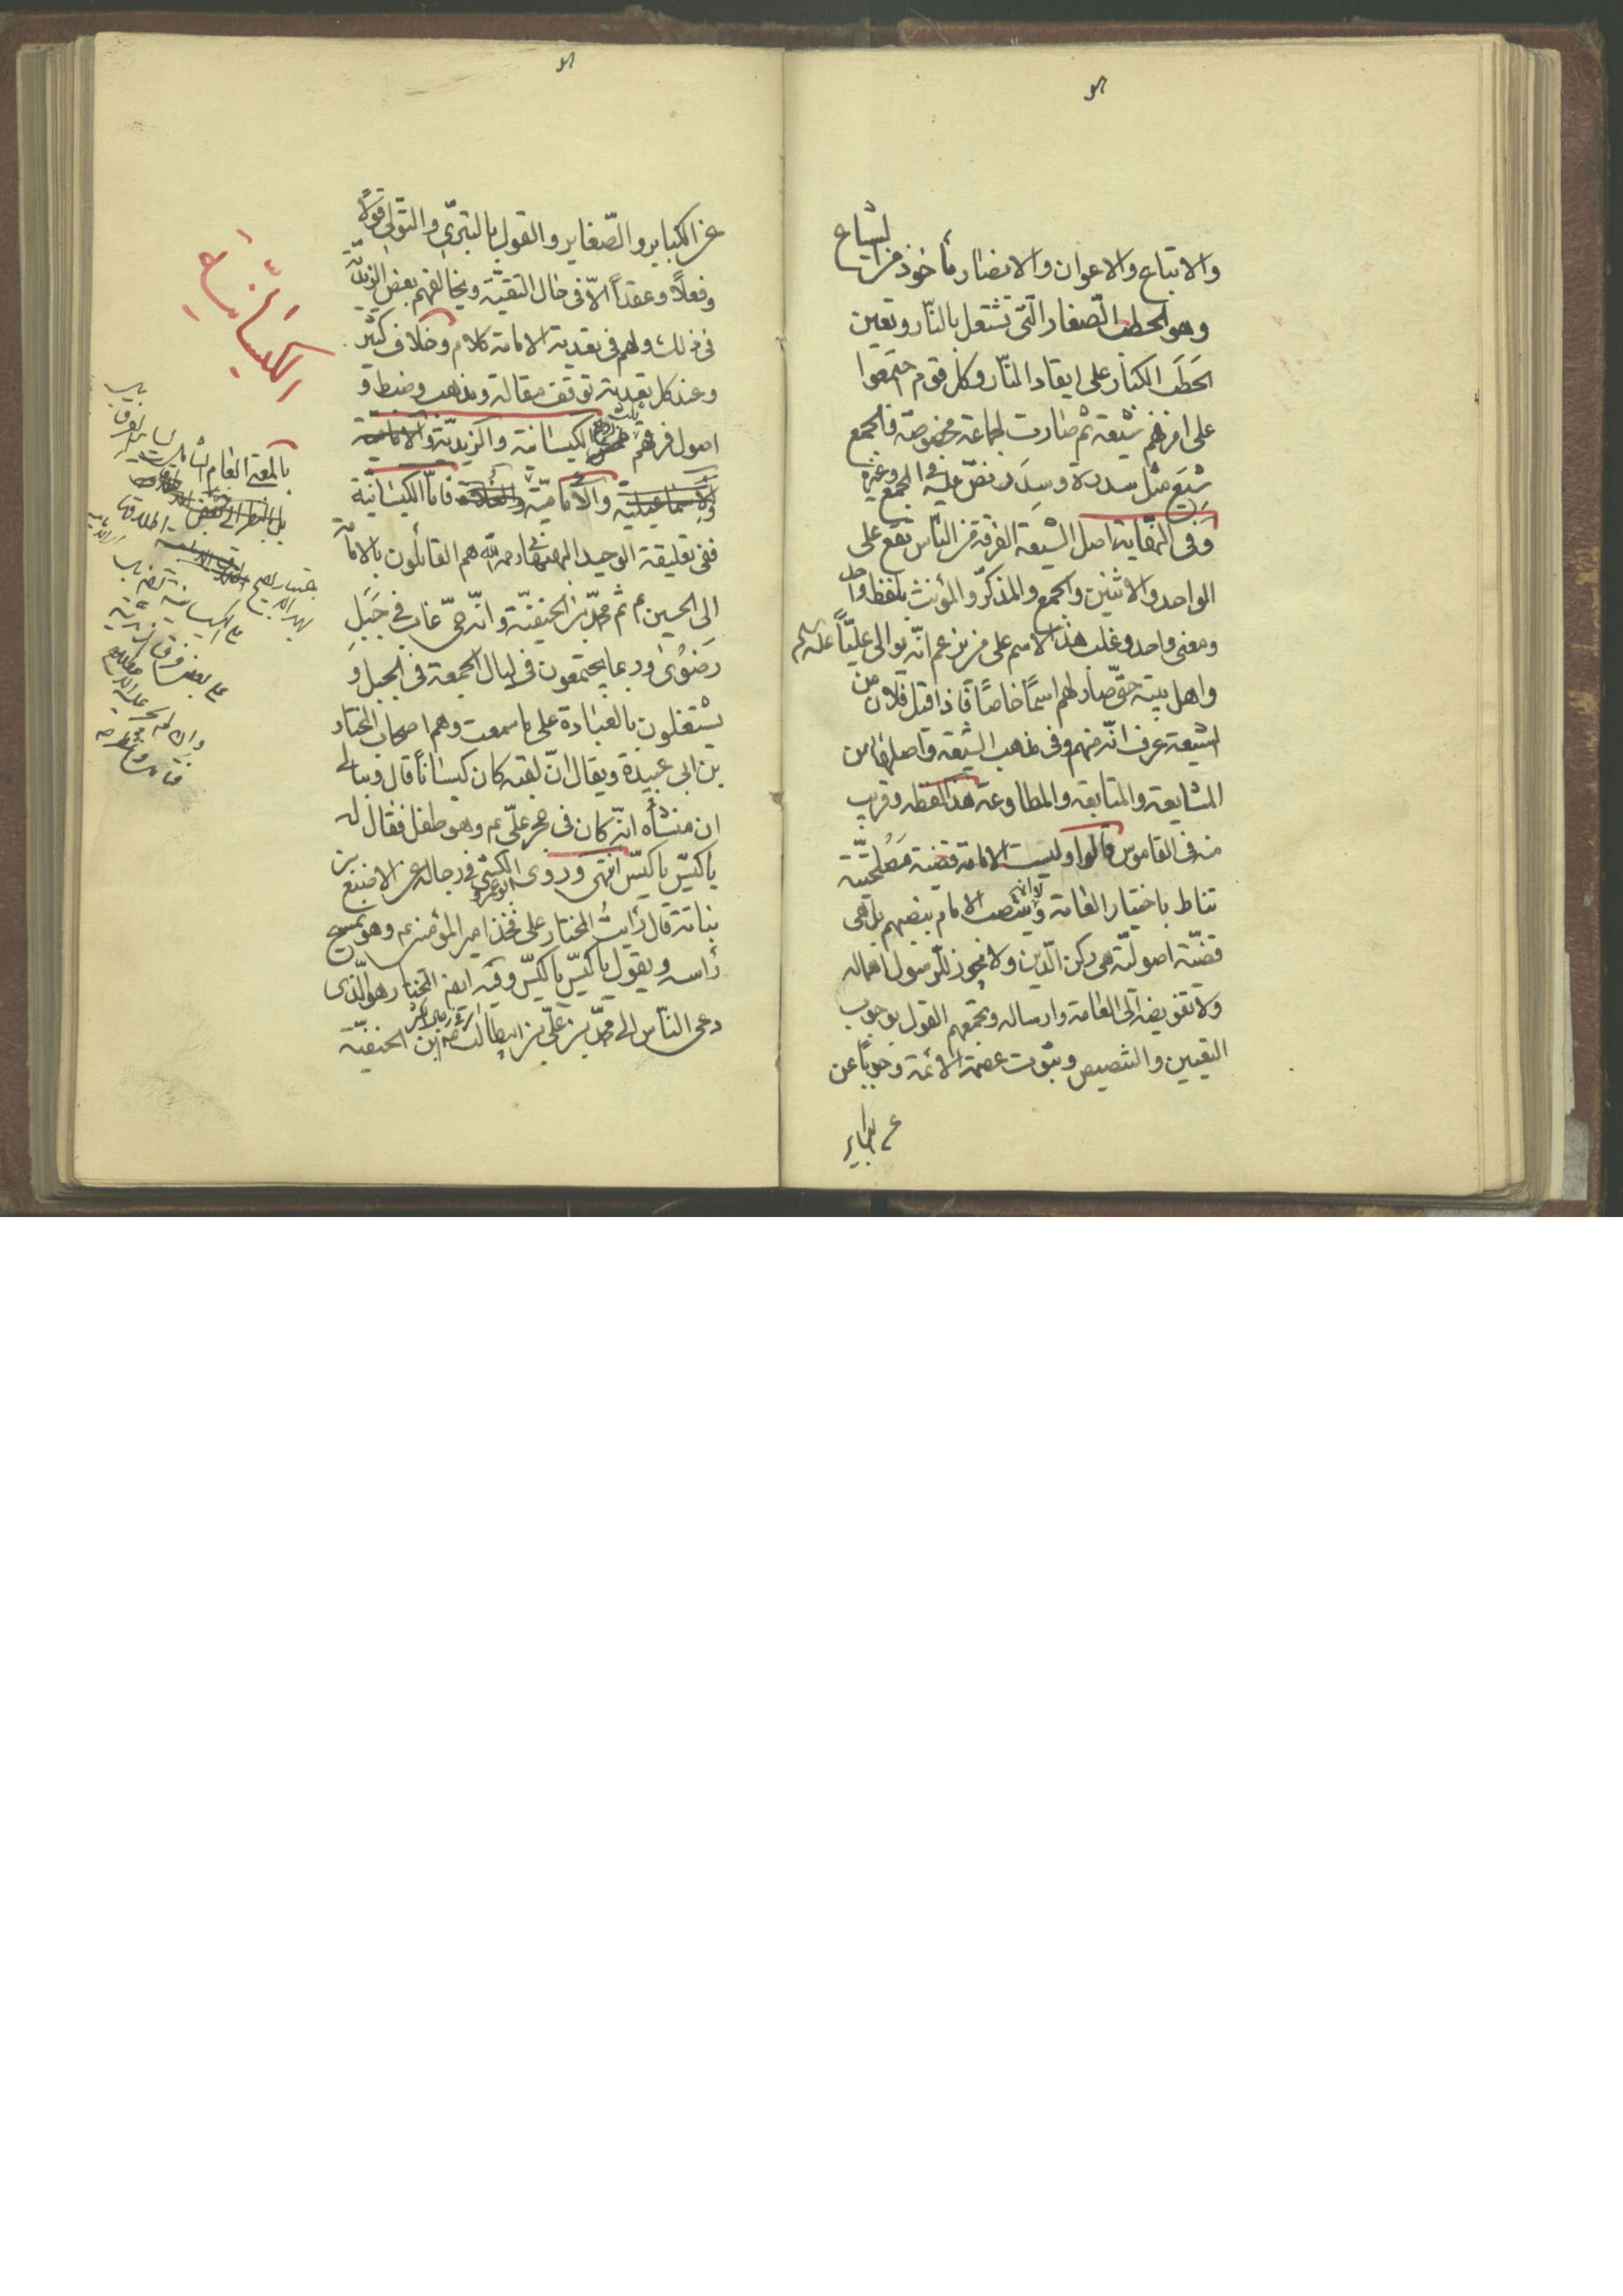 والاتباع والاعوان والانصار مأخوذ من الشياع
وهو الحطب الصغار التى تشتعل بالنار وتعين
الحطب الكبار على ايقاد النار وكل قوم اجتمعوا
على امر فهم شيعة ثم صارت لجماعة مخصوصة فالجمع
شيع مثل سدرة وسدر نص عليه فى المجمع وغيره
وفى النهاية اصل الشيعة الفرقة من الناس تقع على
الواحد والاثنين والجمع والمذكر والمؤنث بلفظ واحد
ومعنى واحد وغلب هذا الاسم على من يزعم انه يوالى عليا عليه السلم
واهل بيته حتى صار لهم اسما خاصا فاذا قيل فلان من
الشيعة عرف انه منهم وفى مذهب الشيعة واصلها من
المشايعة والمتابعة والمطاوعة هذا لفظه وقريب
منه فى القاموس قالوا وليست الامامة قضية مصلحتية
تناط باختيار العامة وينتصب الامام بنصبهم بل هى
قضية اصولية هى ركن الدين ولا يجوز للرسول اهماله
ولا تفويضه الى العامة وارساله ويجمعهم القول بوجوب
التعيين والتنصيص وثبوت عصمة الائمة وجوبا عن
عن الكبائر
عن الكباير والصغاير والقول بالتبرى والتولى قولا
وفعلا وعقدا الا فى حال التقية ويخالفهم بعض الزيدية
فى ذلك ولهم فى تعدية الامامة كلام وخلاف كثير
وعند كل تعدية توقف مقالة ومذهب وخبط و
اصول فرقهم الكيسانية والزيدية والامامية
والاسماعيلية والامامية فاما الكيسانية
ففى تعليقة الوحيد البهبهانى رحمه الله هم القائلون بالامامة
الى الحسين ع ثم محمد بن الحنفية وانه حى غاب فى جبل
رضوى وربما يجتمعون فى ليال الجمعة فى الجبل و
يشتغلون بالعبادة على ما سمعت وهم اصحاب المختار
بن ابى عبيدة ويقال ان لقبه كان كيسانا قال وببالى
ان منشأه انه كان فى حجر على ع وهو طفل فقال له
يا كيس يا كيس انتهى وروى الكشى ابو عمرو فى رجاله عن الاصبغ بن
نباتة قال رأيت المختار على فخذ امير المؤمنين ع وهو يمسح
رأسه ويقول يا كيس يا كيس وفيه ايضا المختار هو الذى
دعى الناس الى محمد بن على بن ابيطالب ابن الحنفية
الكيسانية
بالمعنى العام الشامل لساير الفرق